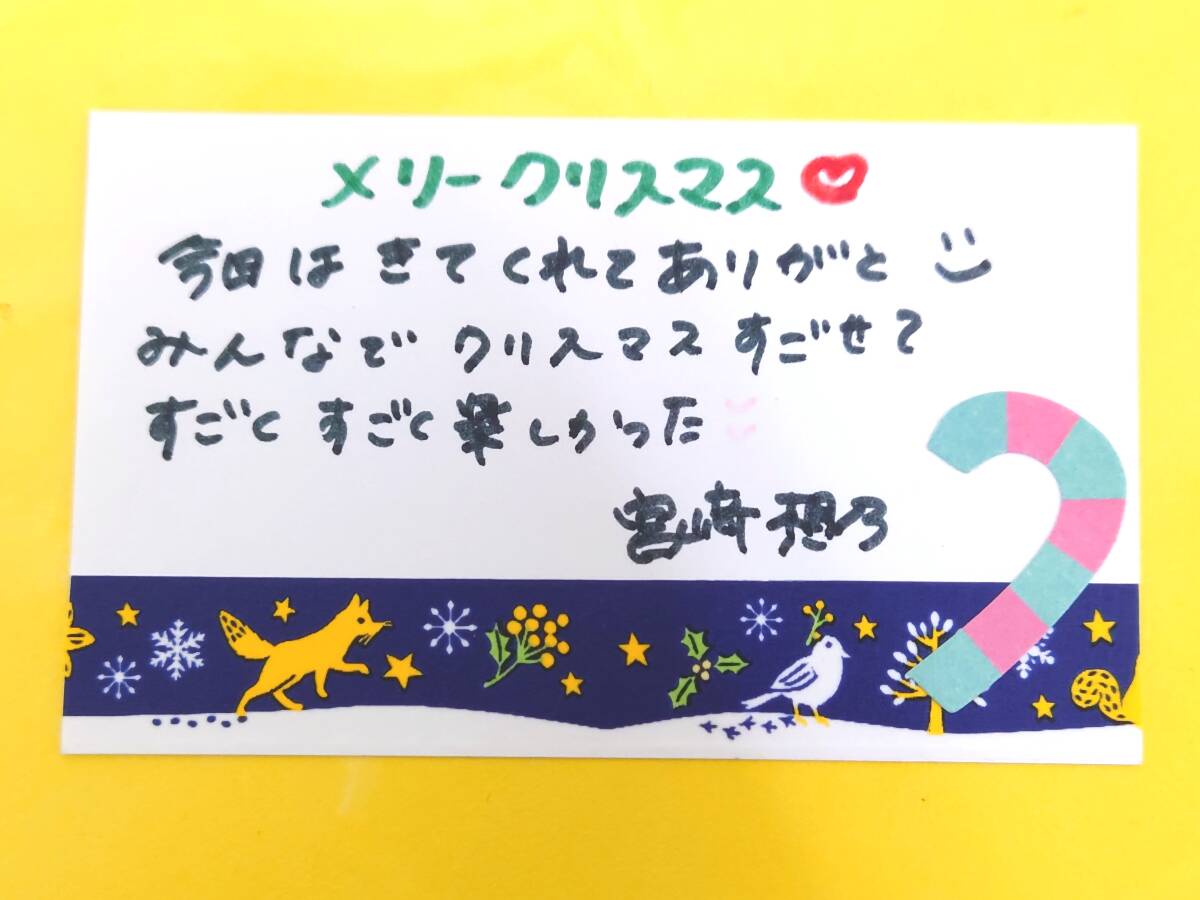 メリークリスマス
今日は きてくれて ありがと
みんなで クリスマス すごせて
すごく すごく 楽しかった
宮崎想乃